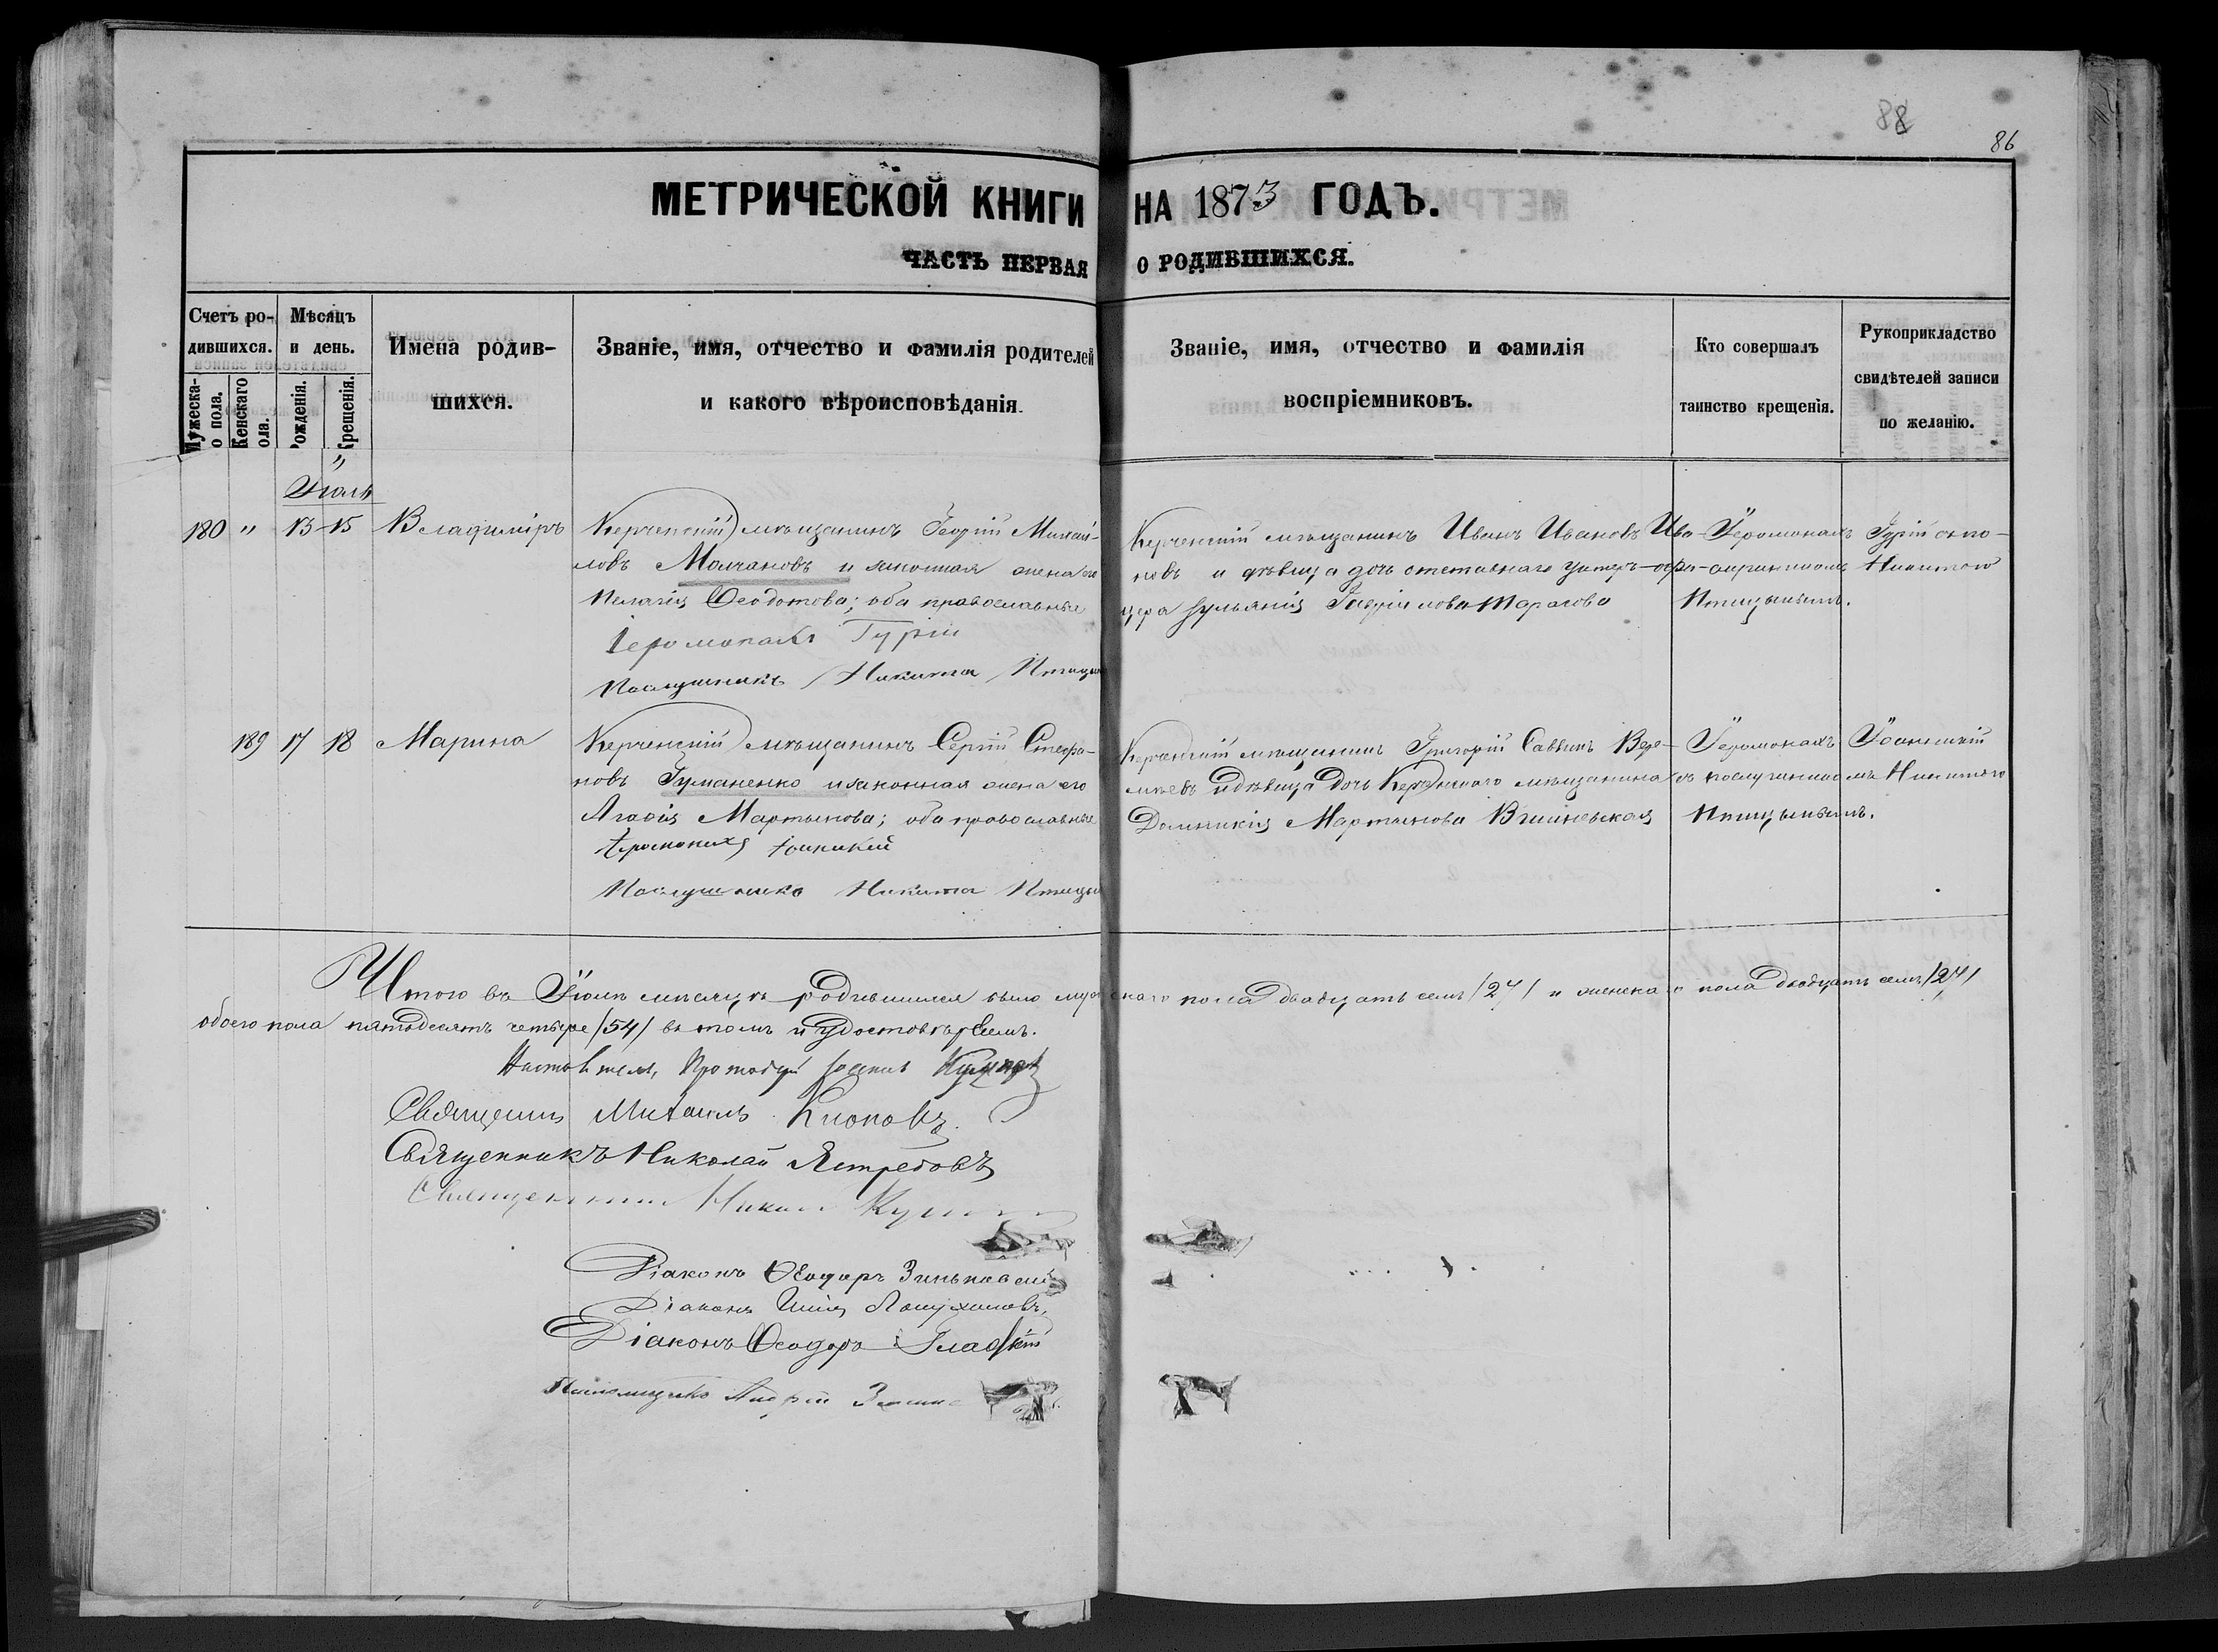 88
86
МЕТРИЧЕСКОЙ КНИГИ НА 1873 ГОДЪ.
ЧАСТЬ ПЕРВАЯ О РОДИВШИХСЯ.
Счетъ ро-
дившихся.
Мужеска-
о пола.
Женскаго
ола.
Мѣсяцъ
и день.
Рожденія.
Крещенія.
Имена родив-
шихся.
Званіе, имя, отчество и фамилія родителей
и какого вѣроисповѣданія.
Званіе, имя, отчество и фамилія
воспріемниковъ.
Кто совершалъ
таинство крещенія.
Рукоприкладство
свидѣтелей записи
по желанію.
Іюль
180 " 13 15 Владиміръ
Керченскій мѣщанинъ Георгій Михай-
ловъ Молчановъ и законная жена его
Пелагія Ѳеодотова; оба православные
Іеромонахъ Гурій
Послушникъ Никита Птицы
Керченскій мѣщанинъ Иванъ Ивановъ Ива-
новъ и дѣвица дочь отставнаго унтеръ-офи-
цера Іульянія Гавріилова Тарасова
Іеромонахъ Гурій съ по-
Никитою
Птицынымъ.
189 17 18 Марина
Керченскій мѣщанинъ Сергій Стефа-
новъ Гуманенко и законная жена его
Агафія Мартынова; оба православные
Іеромонахъ Іоаникій
Послушникъ Никита Птицы
Керченскій мѣщанинъ Григорій Саввинъ Вере-
мѣевъ и дѣвица дочь Керченскаго мѣщанина
Домникія Мартынова Вишневская
Іеромонахъ Іоаникій
съ послушникомъ Никитою
Птицынымъ.
Итого въ Іюлѣ мѣсяцѣ родившихся было мужескаго пола двадцать семь /27/ и женскаго пола двадцать семь /27/
обоего пола пятьдесятъ четыре /54/ въ томъ и удостовѣряемъ.
Настоятель, Протоіерей
Священникъ Михаилъ
Священникъ Николай Ястребовъ
Священникъ
Діаконъ Ѳеодоръ Зиньковскі
Діаконъ
Діаконъ Ѳеодоръ Гладкій
Псаломщикъ Андрей